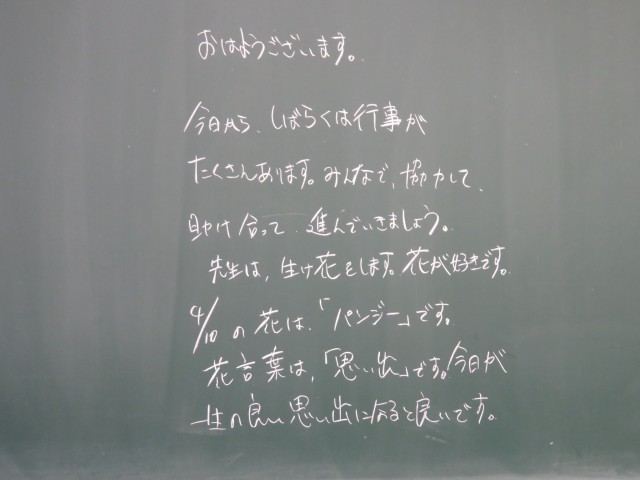 おはようございます。
今日から、しばらくは行事が
たくさんあります。みんなで、協力して、
助け合って進んでいきましょう。
先生は、生け花をします。花が好きです。
4/10の花は、「パンジー」です。
花言葉は、「思い出」です。今日が
一生の良い思い出になると良いです。